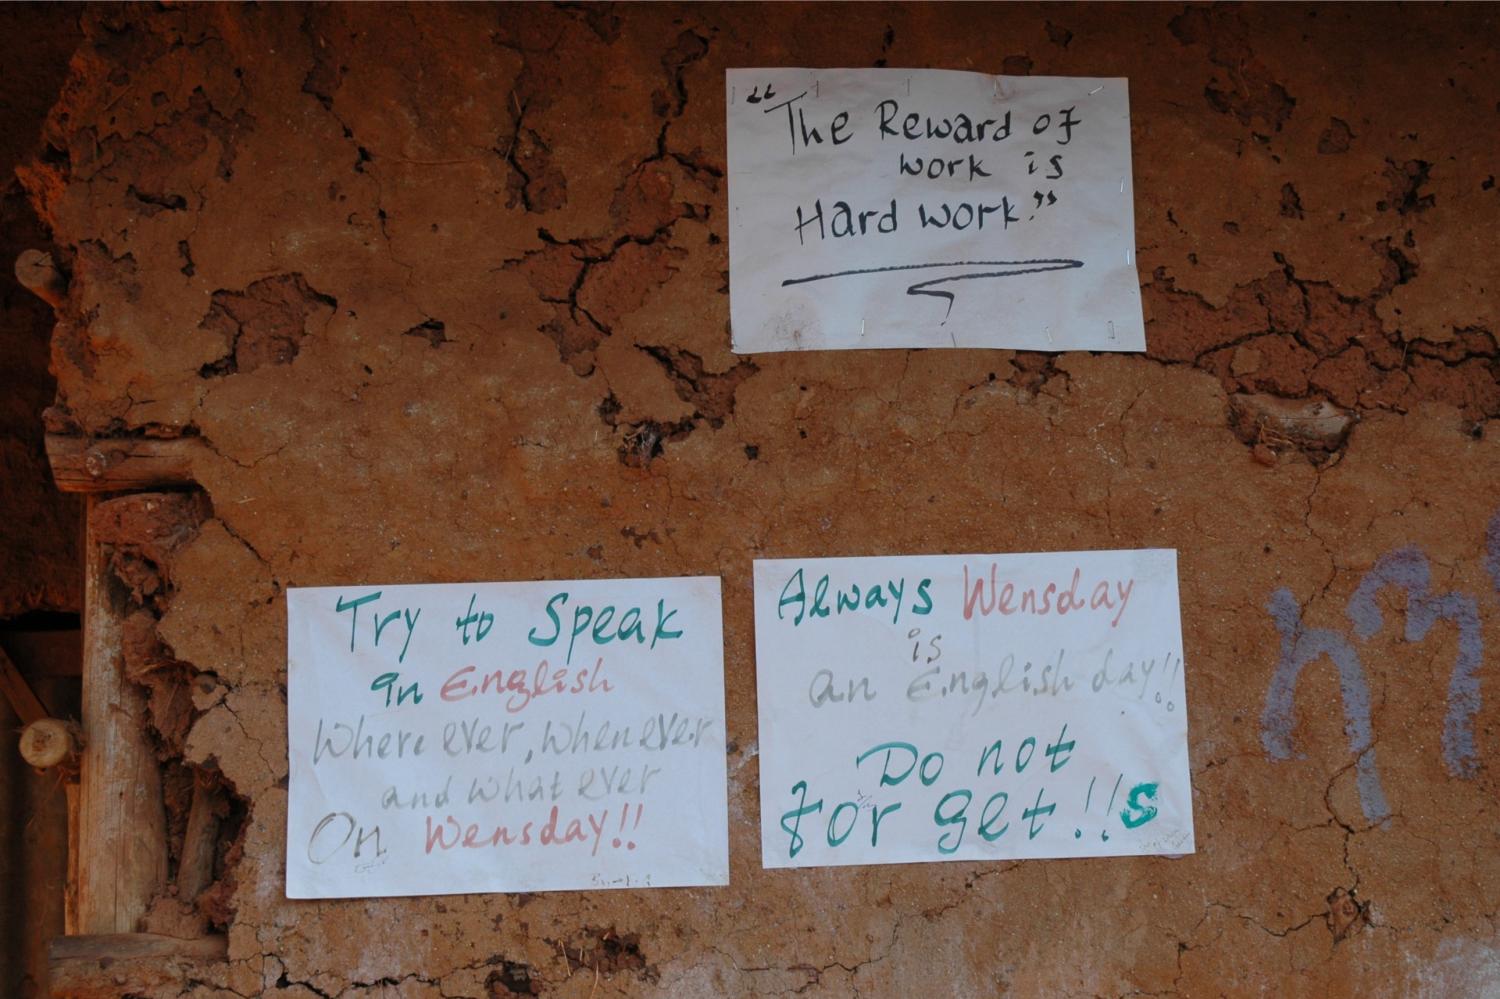 “The Reward of
work is
Hard work.”
Try to Speak
in English
Where ever, whenever
and what ever
On Wensday!!
Always Wensday
is
an English day!!
Do not
for get!!s